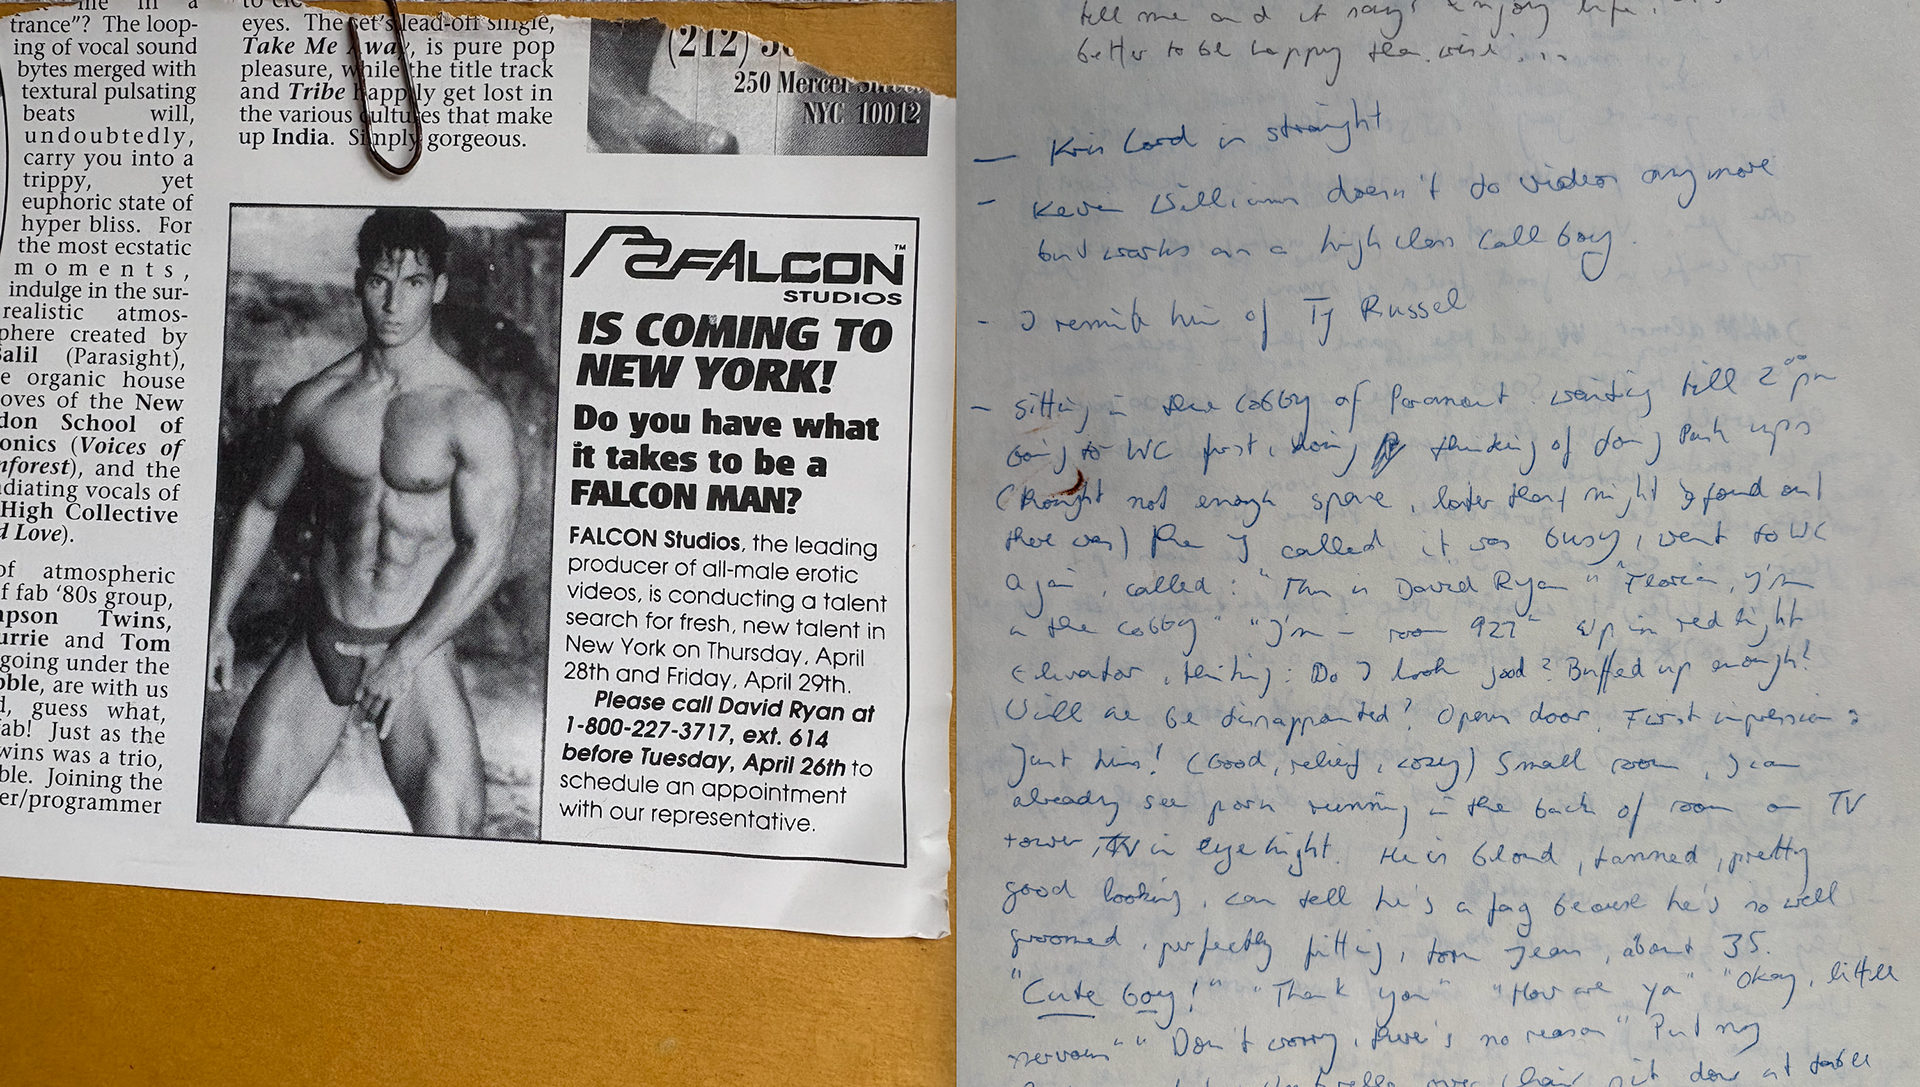 me in a
trance”? The loop-
ing of vocal sound
bytes merged with
textural pulsating
beats will,
undoubtedly,
carry you into a
trippy, yet
euphoric state of
hyper bliss. For
the most ecstatic
moments,
indulge in the sur-
realistic atmos-
phere created by
Salil (Parasight),
e organic house
oves of the New
don School of
onics (Voices of
nforest), and the
adiating vocals of
High Collective
d Love).
of atmospheric
f fab ‘80s group,
mpson Twins,
urrie and Tom
going under the
bble, are with us
d, guess what,
fab! Just as the
wins was a trio,
ble. Joining the
er/programmer
eyes. The set’s lead-off single,
Take Me Away, is pure pop
pleasure, while the title track
and Tribe happily get lost in
the various cultures that make
up India. Simply gorgeous.
(212)
250 Mercer Street
NYC 10012
FALCON™
STUDIOS
IS COMING TO
NEW YORK!
Do you have what
it takes to be a
FALCON MAN?
FALCON Studios, the leading
producer of all-male erotic
videos, is conducting a talent
search for fresh, new talent in
New York on Thursday, April
28th and Friday, April 29th.
Please call David Ryan at
1-800-227-3717, ext. 614
before Tuesday, April 26th to
schedule an appointment
with our representative.
tell me and it says enjoy life,
better to be happy than
– Kris Lord is straight
– Kevin Williams doesn't do videos anymore
but works as a high class call boy.
– I remind him of Ty Russel
– Sitting in the lobby of Paramount waiting till 2⁰⁰ pm
Going to WC first, thinking of doing Push ups
(thought not enough space, later that night I found out
there was) Then I called, it was busy, went to WC
again, called: "This is David Ryan" "Florian, I'm
in the lobby" "I'm – room 927" Up in red light
Elevator, thinking: Do I look good? Buffed up enough?
Will he be disappointed? Opens door. First impression:
Just him! (Good, relief, cozy) Small room, I can
already see porn running in the back of room on TV
tower, TV in eye hight. He is blond, tanned, pretty
good looking, can tell he's a fag because he's so well
groomed, perfectly fitting, torn jeans, about 35.
"Cute boy!" "Thank you" "How are ya" "Okay, little
nervous" "Don't worry, there's no reason" Put my
over chair, sit down at table